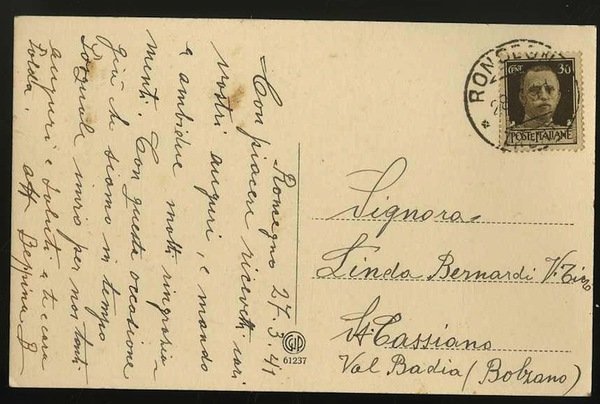 Romegno 27-3-41
Con piacere ricevetti cari
vostri auguri, e mando
a ambidue molti ringrazia
menti. Con questa occasione
già che siamo in tempo
Pasquale invio per noi tanti
auguri e saluti a te e cara
Tolda. aff Beppina B
RONCEGNO
CENT 30
POSTE ITALIANE
Signora
Linda Bernardi V. Tizzo
St. Cassiano
Val Badia (Bolzano)
61237